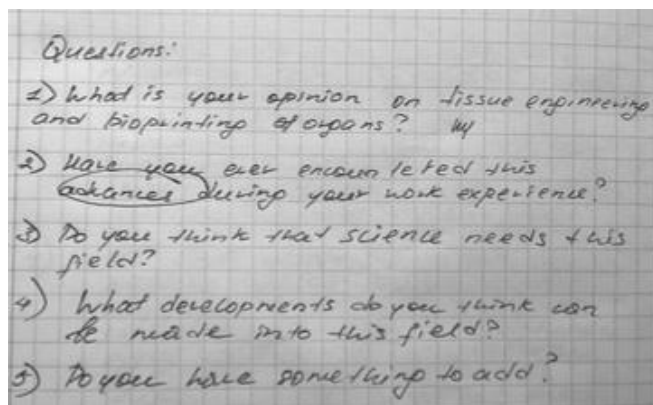 Questions:
1) What is your opinion on tissue engineering
and bioprinting of organs?
2) Have you ever encounleted this
advances during your work experience?
3) Do you think that science needs this
field?
4) What developments do you think can
be made into this field?
5) Do you have something to add?